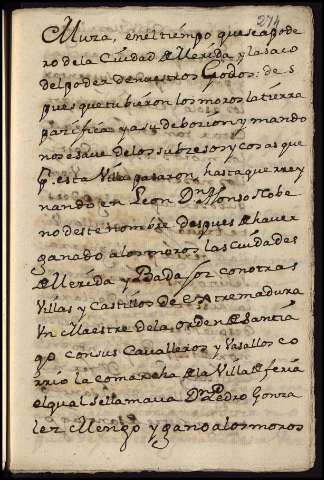 274
Muza, en el tiempo que se apode
ro de la Ciudad de Merida y la saco
del poder de nuestros Godos: de s
pues que tubieron los moros la tierra
pacifica y a su debocion y mando
no se save de los subzesos y cosas que
p.r esta Villa pasaron, hasta que rrey
nando en Leon D.n Alfonso Nobe
no deste nombre despues de haver
ganado a los moros las ciudades
de Merida y Badajoz con otras
Villas y Castillos de Extremadura
Vn Maestre de la orden de Santia
go con sus Cavalleros y Vasallos co
rrio la comarcha de la Villa de feria
el qual se llamava D.n Pedro Gonza
lez Mengo y gano a los moros